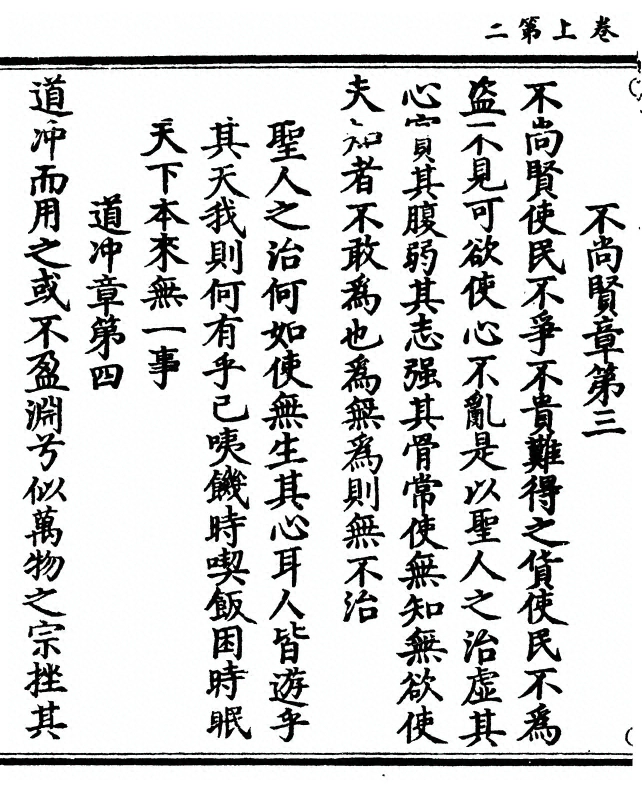 卷上第二
不尚賢章第三
不尚賢使民不爭不貴難得之貨使民不爲
盜不見可欲使心不亂是以聖人之治虛其
心實其腹弱其志强其骨常使無知無欲使
夫知者不敢爲也爲無爲則無不治
聖人之治何如使無生其心耳人皆遊乎
其天我則何有乎已咦饑時喫飯困時眠
天下本來無一事
道冲章第四
道冲而用之或不盈淵兮似萬物之宗挫其